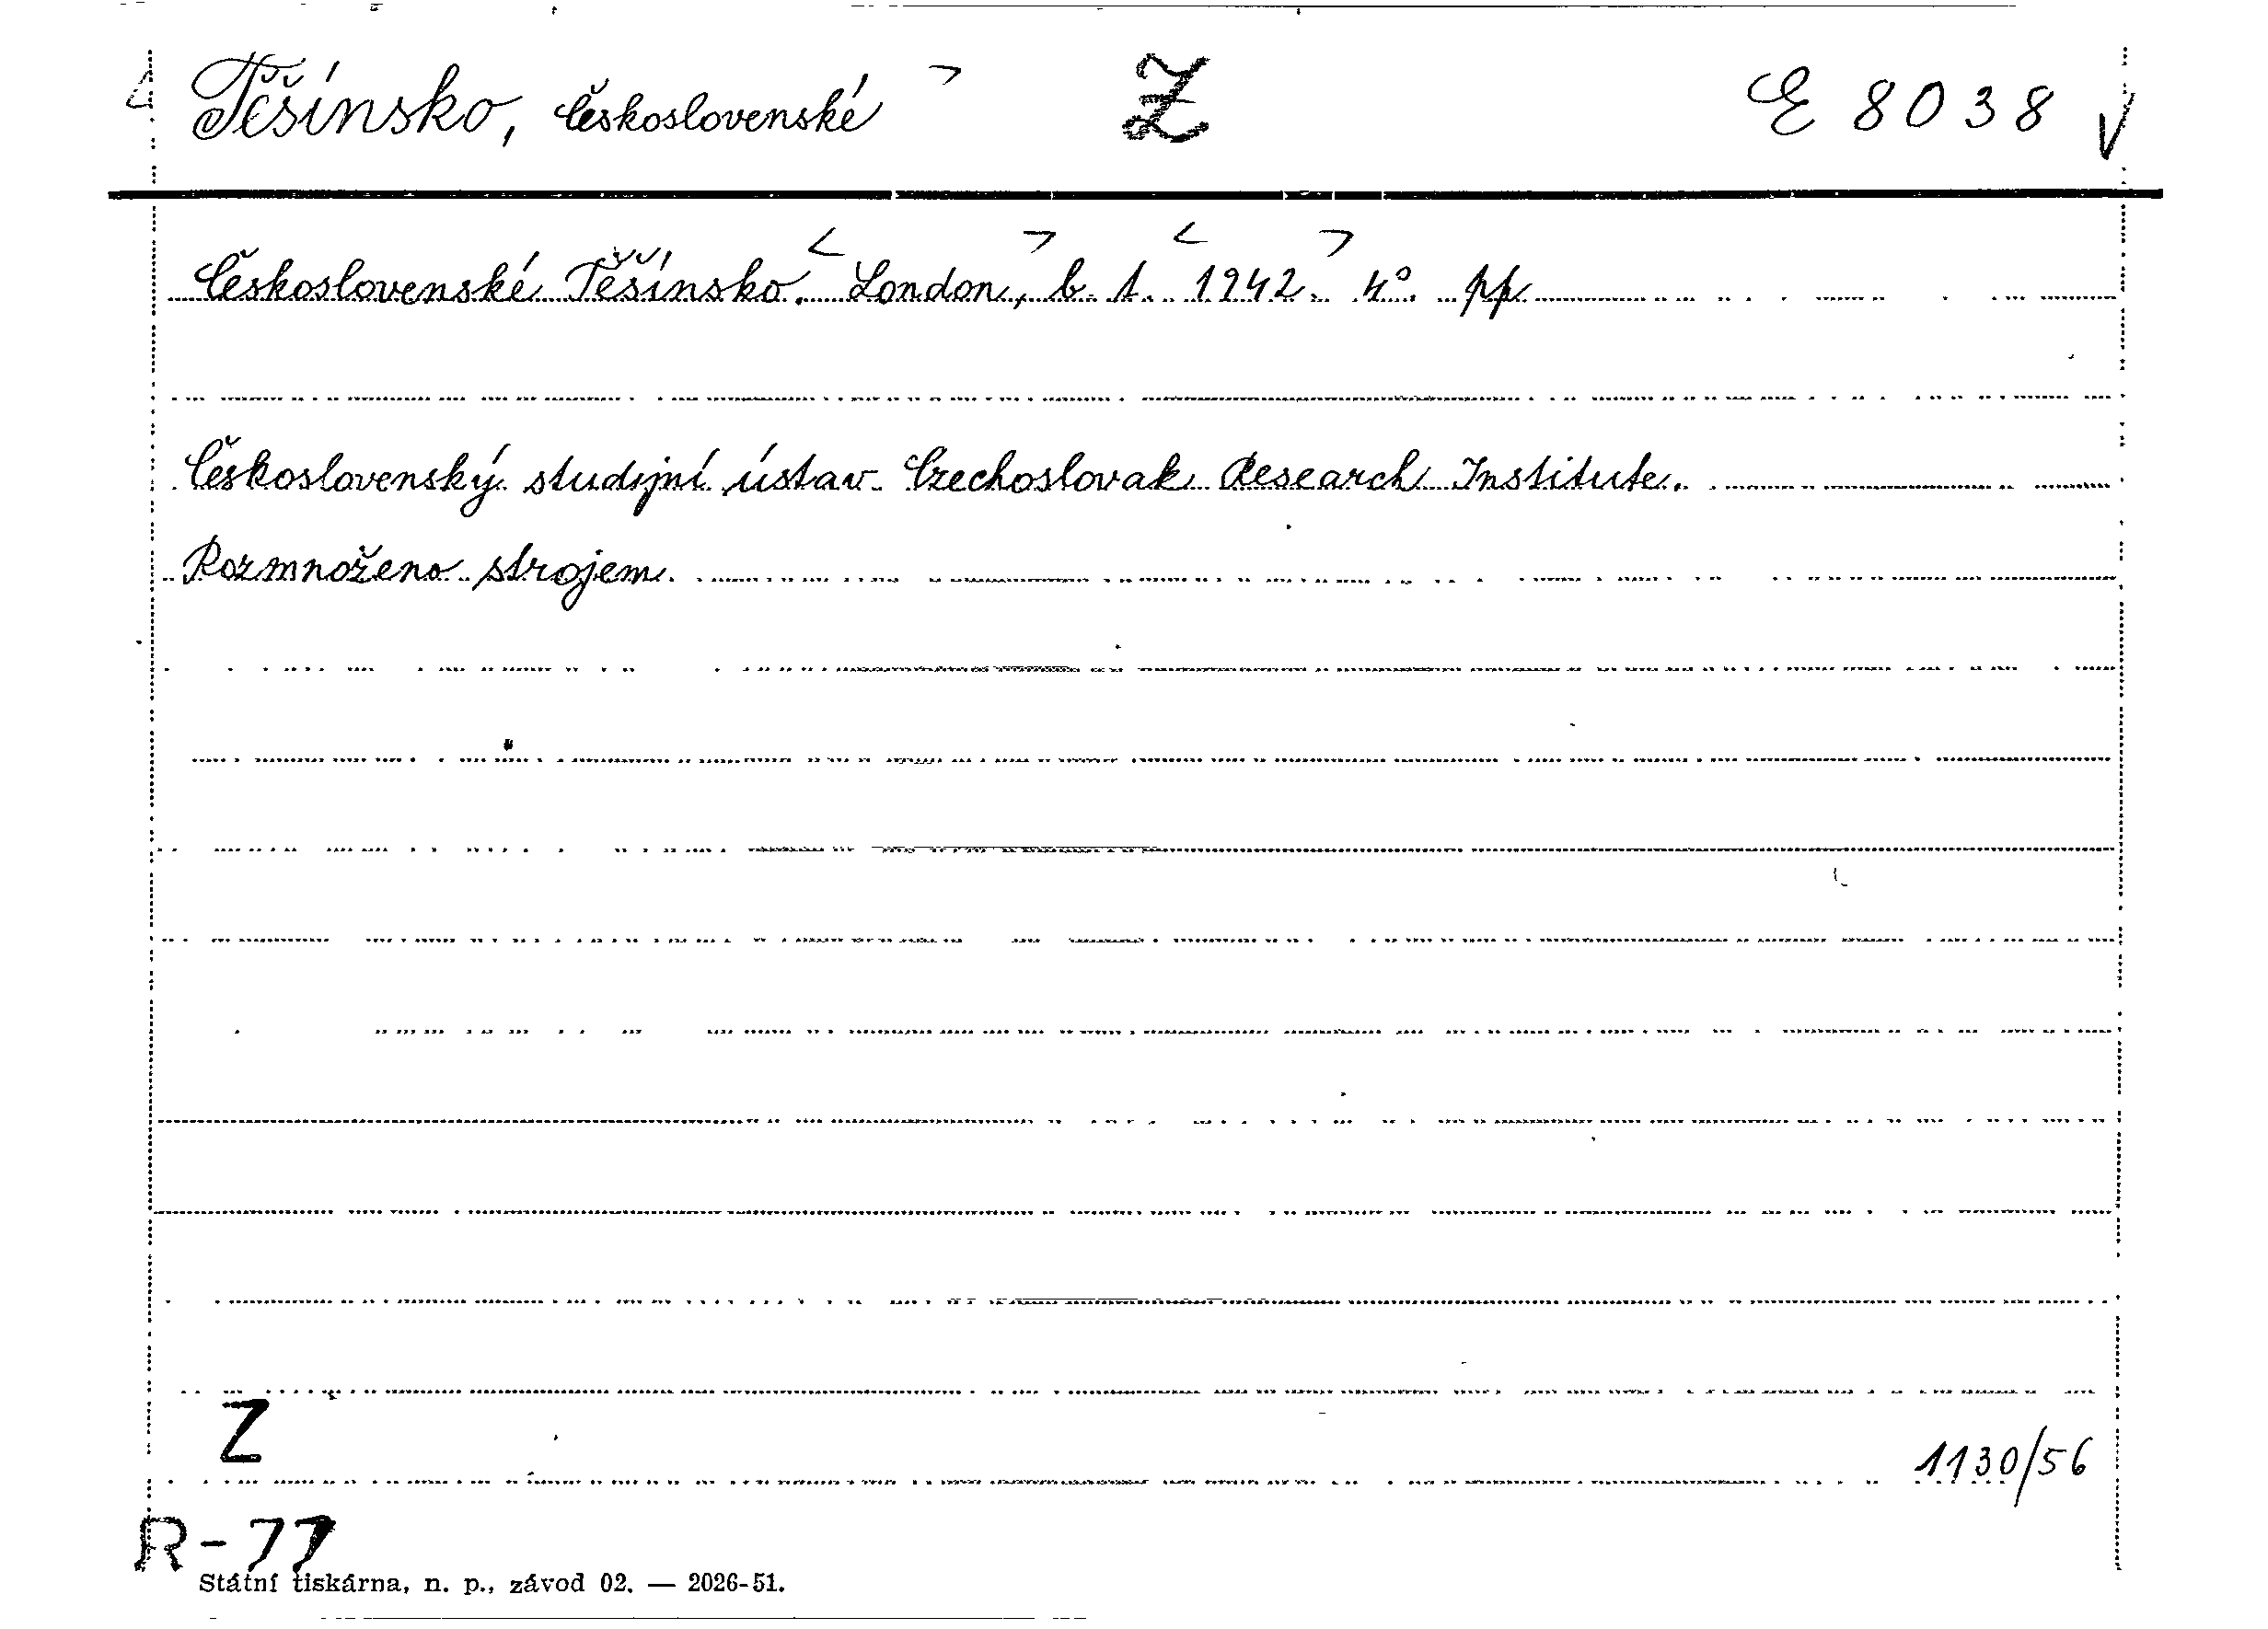 Těšínsko, Československé Z E 8038
Československé Těšínsko. London, b. t. 1942. 4°. pp
Československý studijní ústav. Czechoslovak Research Institute.
Rozmnoženo strojem.
Z
1130/56
R-77
Státní tiskárna, n. p., závod 02. — 2026-51.